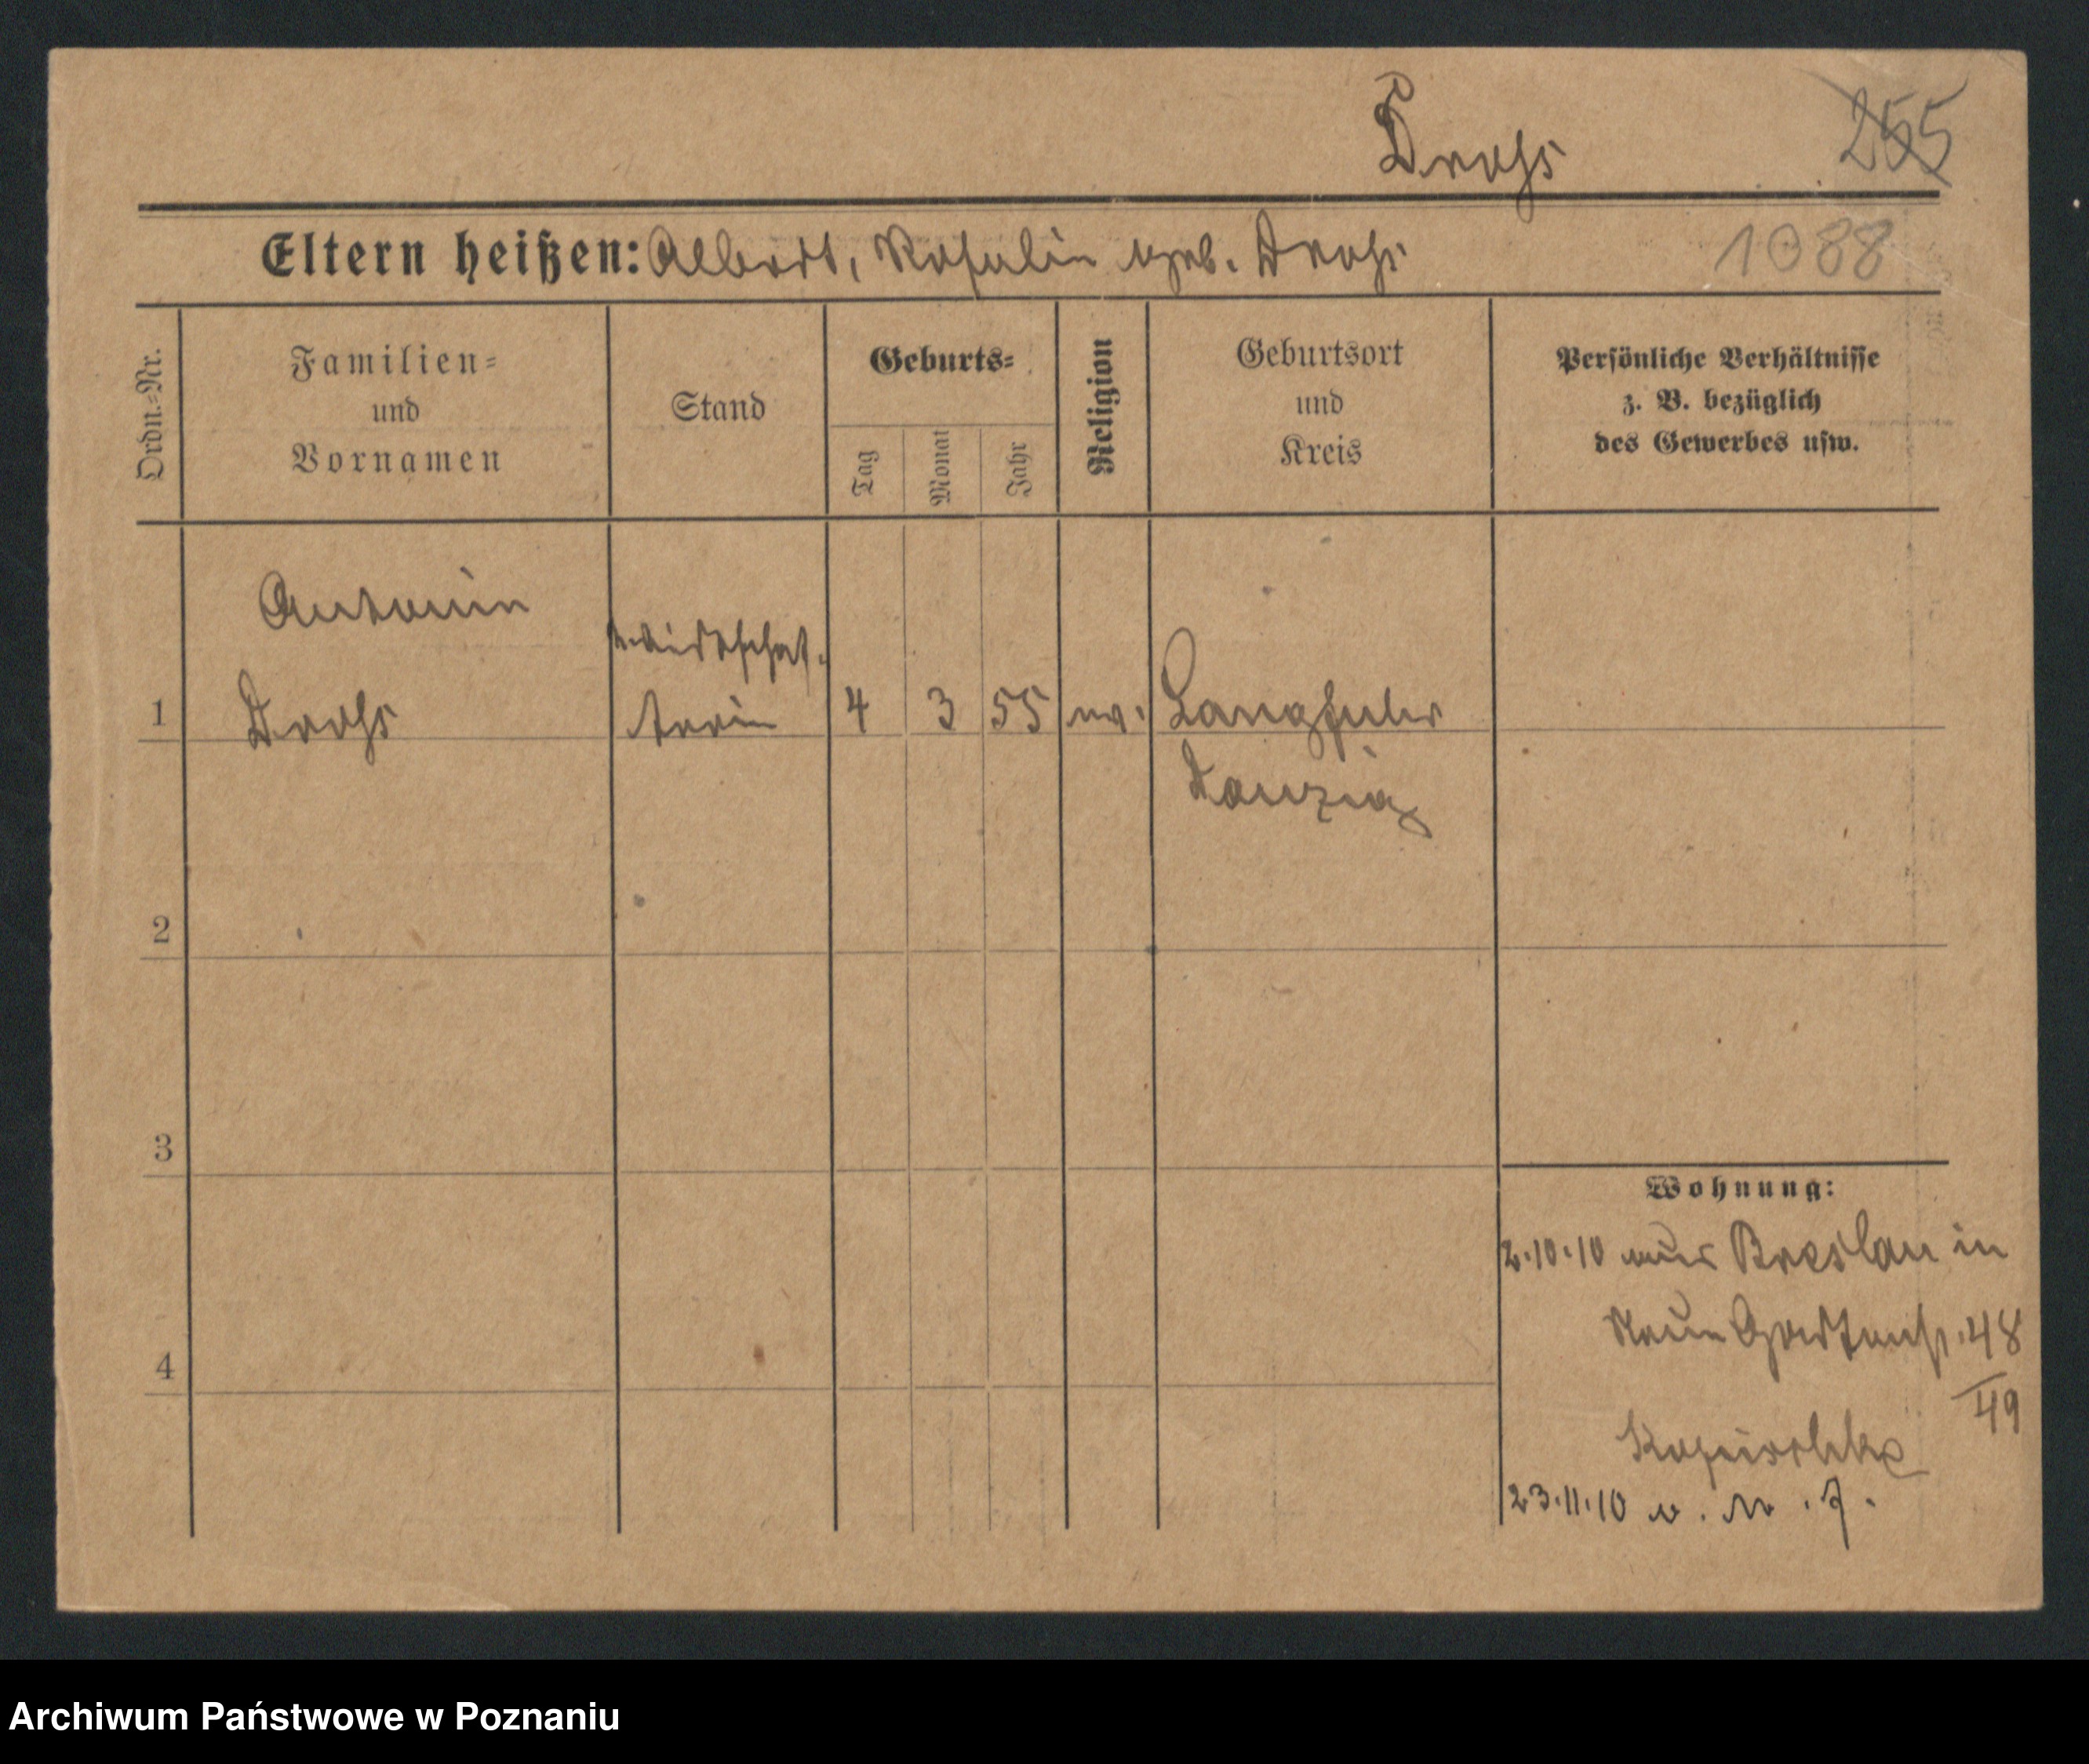 Dross
255
Eltern heißen: Albert, Rosalie geb. Dross
1088
Ordn.=Nr.
Familien=
und
Vornamen
Stand
Geburts=
Tag
Monat
Jahr
Religion
Geburtsort
und
Kreis
Persönliche Verhältnisse
z. B. bezüglich
des Gewerbes usw.
Antonie
wirtschaf.
1 Dross terin 4 3 55 ev. Langfuhr
Danzig
2
3
4
Wohnung:
2.10.10 aus Breslau in
Neue Gartenst. 48
49
23.11.10 v. N. 7.
Archiwum Państwowe w Poznaniu